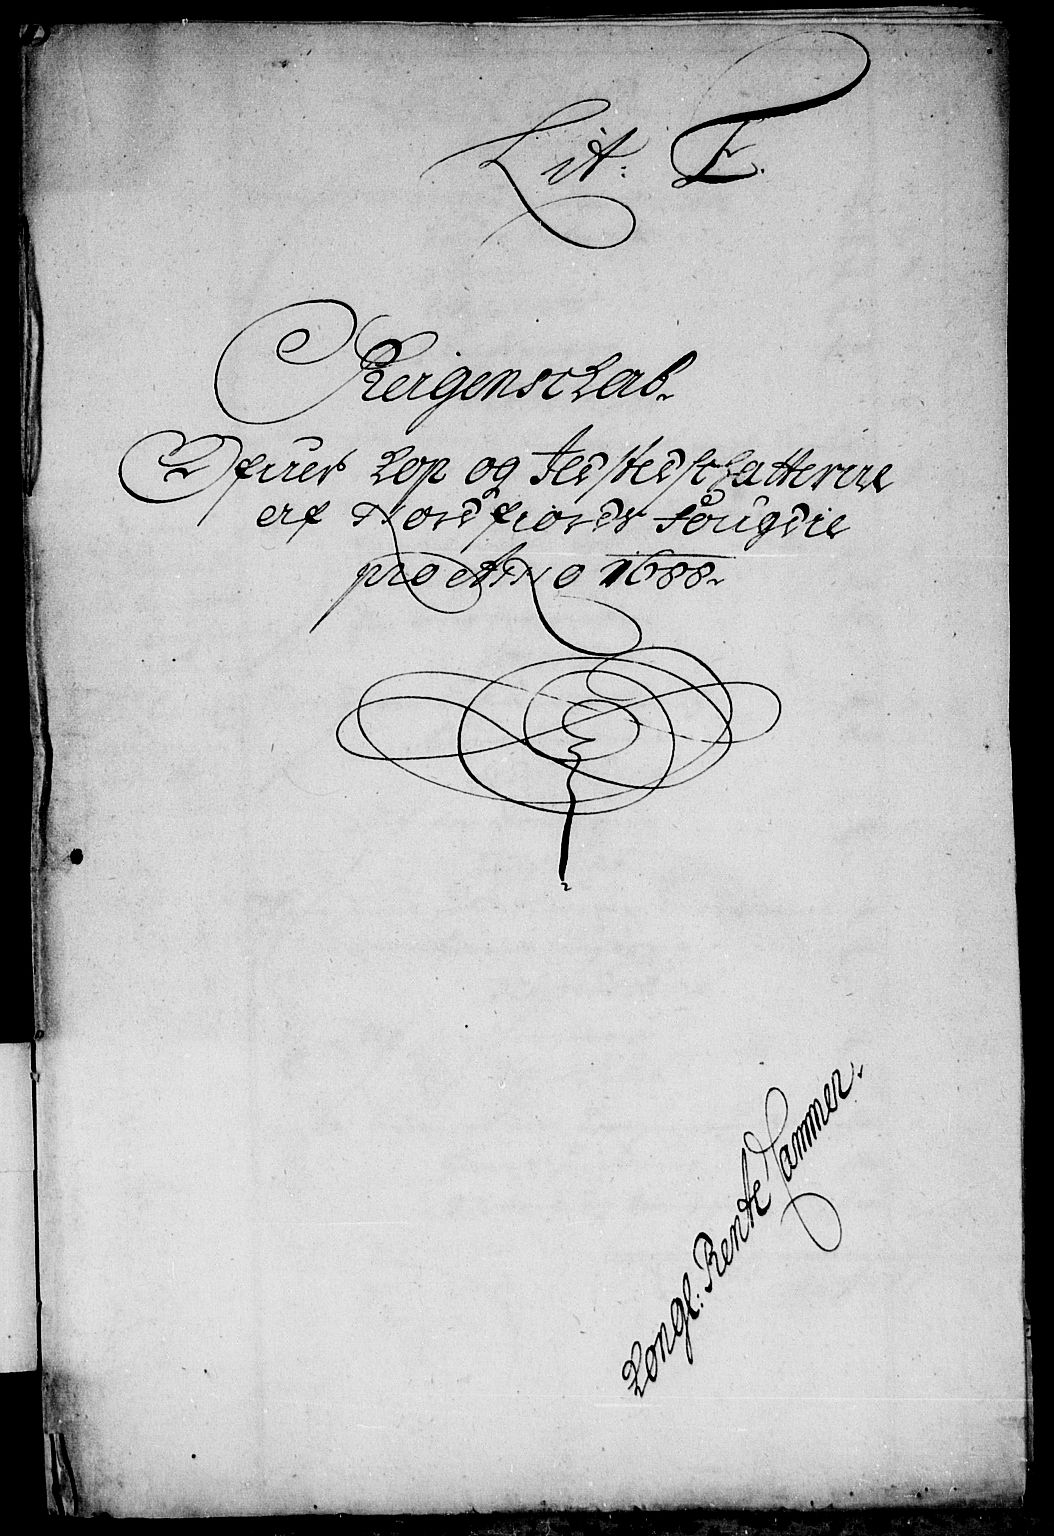 Lit: F.
Reigenschab.
Ofuer Kop og Ildstedschatterne
af Nordfiords Fougderie
pro Anno 1688.
Kongl: Rente Cammer.